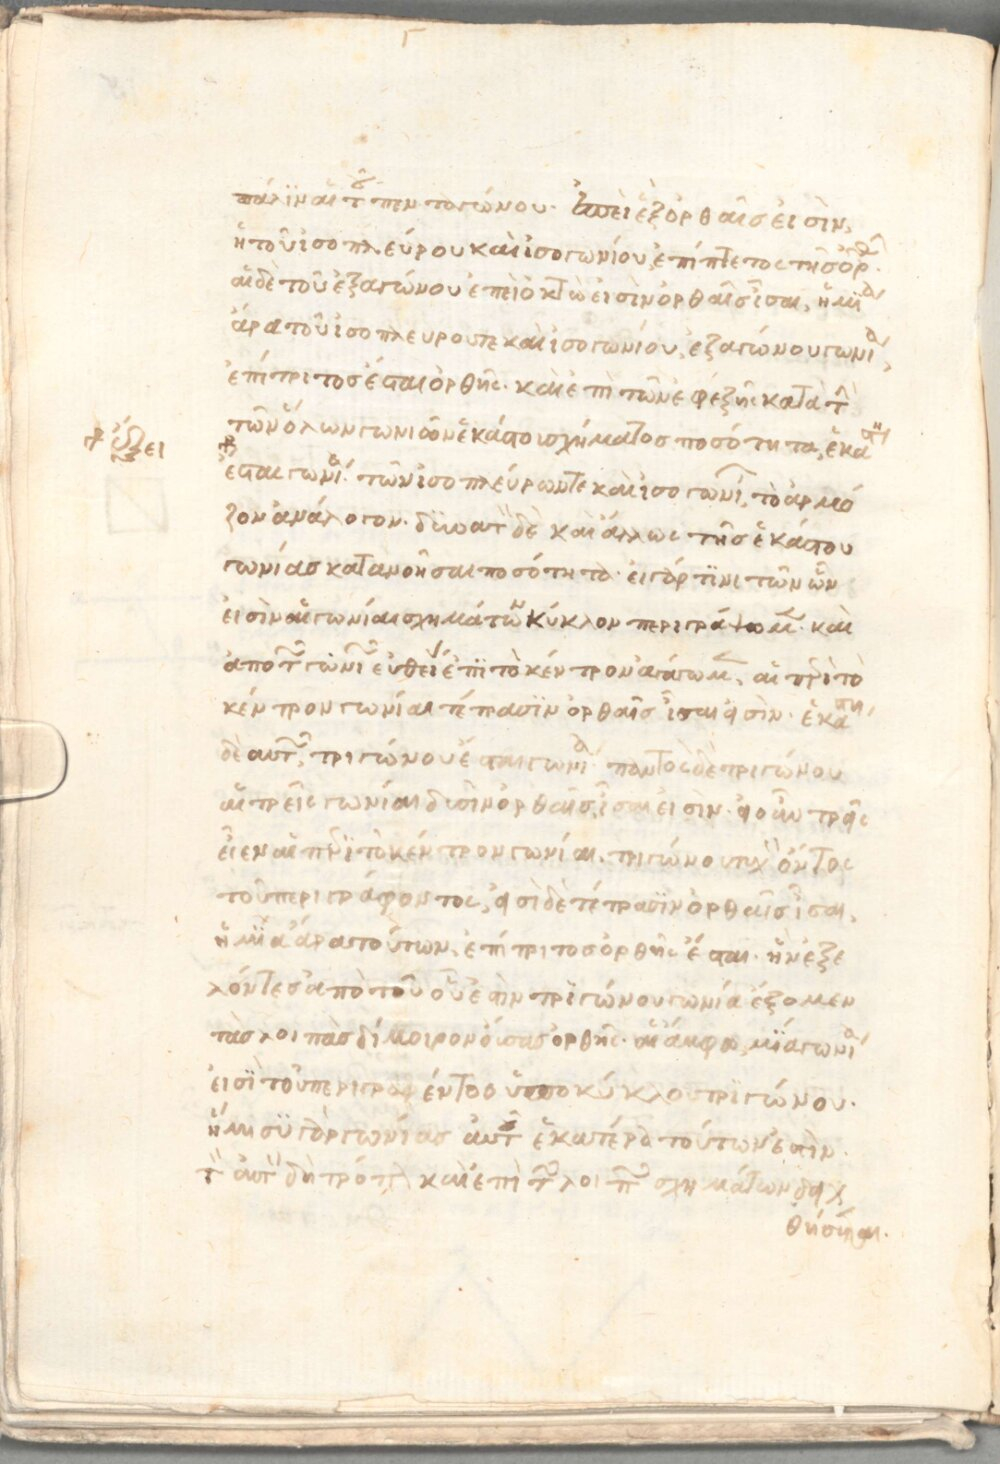 Γ
πάλιν αἱ τοῦ πενταγώνου. ἐπεὶ ἓξ ὀρθαῖς εἰσὶν,
ἡ τοῦ ἰσοπλεύρου καὶ ἰσογωνίου, ἐπίπεμπτος τῆς ὀρθ.
αἱ δὲ τοῦ ἑξαγώνου ἐπεὶ ὀκτὼ εἰσὶν ὀρθαῖς ἴσαι, ἡ μία
ἄρα τοῦ ἰσοπλεύρου τε καὶ ἰσογωνίου, ἑξαγώνου γωνία,
ἐπίτριτος ἔσται ὀρθῆς. καὶ ἐπὶ τῶν ἐφεξῆς κατὰ τὴν
τῶν ὅλων γωνιῶν ἑκάστου σχήματος ποσότητα, ἑκάστη
ἔσται γωνία. τῶν ἰσοπλεύρων τε καὶ ἰσογωνί, τὸ ἁρμό
ζον ἀνάλογον. δυνατὸν δὲ καὶ ἄλλως τῆς ἑκάστου
γωνίας κατανοῆσαι ποσότητα. εἰ γάρ τινι τῶν ὧν
εἰσὶν αἱ γωνίαι σχημάτων κύκλον περιγράψωμεν. καὶ
ἀπὸ τῶν γωνιῶν εὐθείας ἐπὶ τὸ κέντρον ἀγάγωμεν, αἱ περὶ τὸ
κέντρον γωνίαι τέτρασιν ὀρθαῖς ἴσαι εἰσὶν. ἑκάστη
δὲ αὐτῶν, τριγώνου ἔσται γωνία. παντὸς δὲ τριγώνου
αἱ τρεῖς γωνίαι δυσὶν ὀρθαῖς, ἴσαι εἰσὶν. εἰ οὖν τρεῖς
εἶεν αἱ περὶ τὸ κέντρον γωνίαι. τριγώνου τυχὸν ὄντος
τοῦ περιγράφοντος, εἰσὶ δὲ τέτρασιν ὀρθαῖς ἴσαι,
ἡ μία ἄρα τούτων, ἐπίτριτος ὀρθῆς ἔσται. ἣν ἐξε
λόντες ἀπὸ τοῦ οὗ ἐστὶν τριγώνου γωνία ἕξομεν
τὰς λοιπὰς δίμοιρον οὔσας ὀρθῆς. αἳ ἄμφω, μία γωνία
εἰσὶ τοῦ περιγραφέντος ὑπὸ κύκλου τριγώνου.
ἥμισυ γὰρ γωνίας αὐτοῦ ἑκατέρα τούτων ἐστίν.
τὸν αὐτὸν δὴ τρόπον καὶ ἐπὶ τῶν λοιπῶν σχημάτων δειχ
θήσεται.